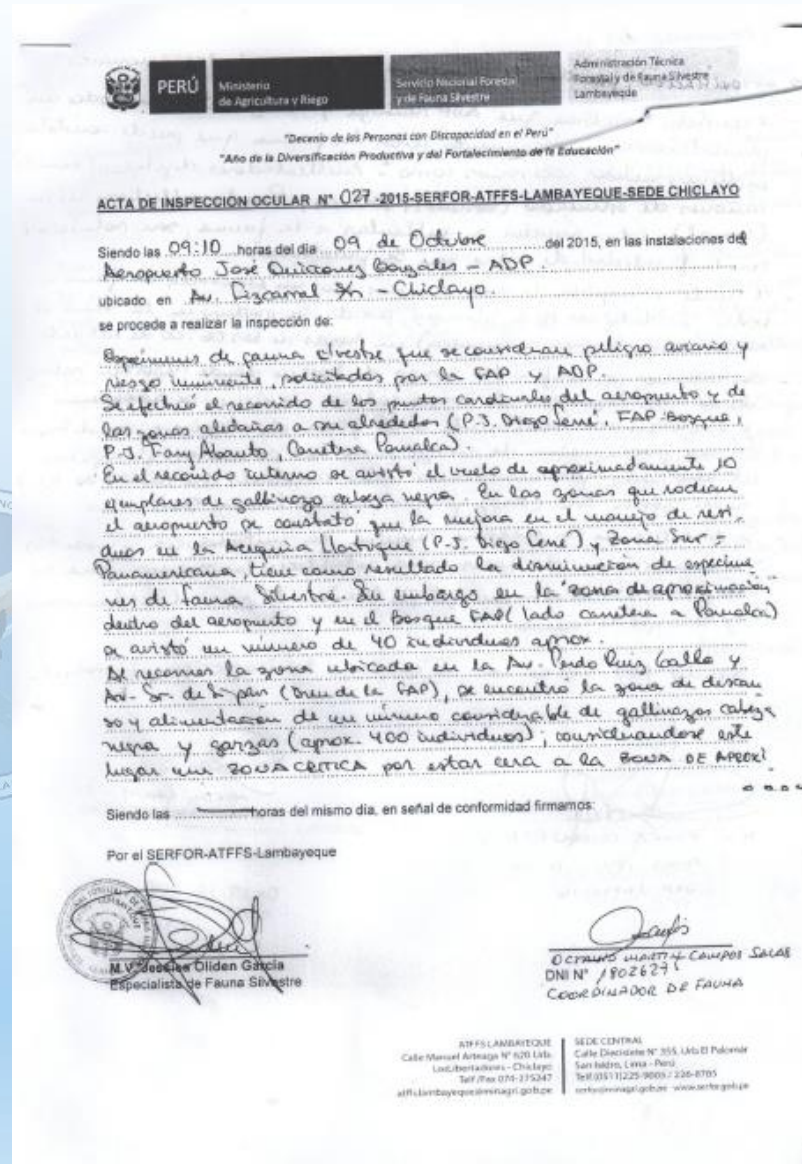 PERÚ
Ministerio
de Agricultura y Riego
Servicio Nacional Forestal
y de Fauna Silvestre
Administración Técnica
Forestal y de Fauna Silvestre
Lambayeque
"Decenio de las Personas con Discapacidad en el Perú"
"Año de la Diversificación Productiva y del Fortalecimiento de la Educación"
ACTA DE INSPECCIÓN OCULAR N° 027-2015-SERFOR-ATFFS-LAMBAYEQUE-SEDE CHICLAYO
Siendo las 09:10 horas del día 09 de Octubre del 2015, en las instalaciones del
Aeropuerto José Quiñonez Gonzáles - ADP.
ubicado en Av. s/n - Chiclayo.
se procede a realizar la inspección de:
Especímenes de fauna silvestre que se consideran peligro aviario y
riesgo inminente, solicitados por la FAP y ADP.
Se efectuó el recorrido de los puntos cardinales del aeropuerto y de
las zonas aledañas a su alrededor (P.J. Diego Ferré, FAP-Bosque,
P.J. Fany Abanto, Carretera Pomalca).
En el recorrido interno se avistó el vuelo de aproximadamente 10
ejemplares de gallinazo cabeza negra. En las zonas que rodean
el aeropuerto se constató que la mejora en el manejo de resi-
duos en la Acequia (P.J. Diego Ferré) y Zona Sur -
Panamericana, tiene como resultado la disminución de especíme
nes de fauna silvestre. Sin embargo en la zona de aproximación
dentro del aeropuerto y en el Bosque FAP (lado carretera a Pomalca)
se avistó un número de 40 individuos aprox.
Al recorrer la zona ubicada en la Av. Ruiz Gallo y
Av. Sr. de Sipán (Dren de la FAP), se encontró la zona de descan
so y alimentación de un número considerable de gallinazos cabeza
negra y garzas (aprox. 400 individuos); considerandose este
lugar una ZONA CRITICA por estar cerca a la ZONA DE APROXI
....
Siendo las horas del mismo día, en señal de conformidad firmamos:
Por el SERFOR-ATFFS-Lambayeque
M.V. Jessica Oliden García
Especialista de Fauna Silvestre
OCTAVIO MARTIN CAMPOS SALAS
DNI N°
COORDINADOR DE FAUNA
ATFFS LAMBAYEQUE
Calle Manuel Arteaga N° 620 Urb.
Los Libertadores - Chiclayo
Telf./Fax 074-275247
atffs.lambayeque@minagri.gob.pe
SEDE CENTRAL
Calle Diecisiete N° 355, Urb. El Palomar
San Isidro, Lima - Perú
Telf.(0511)225-9005 / 226-8705
serfor@minagri.gob.pe - www.serfor.gob.pe